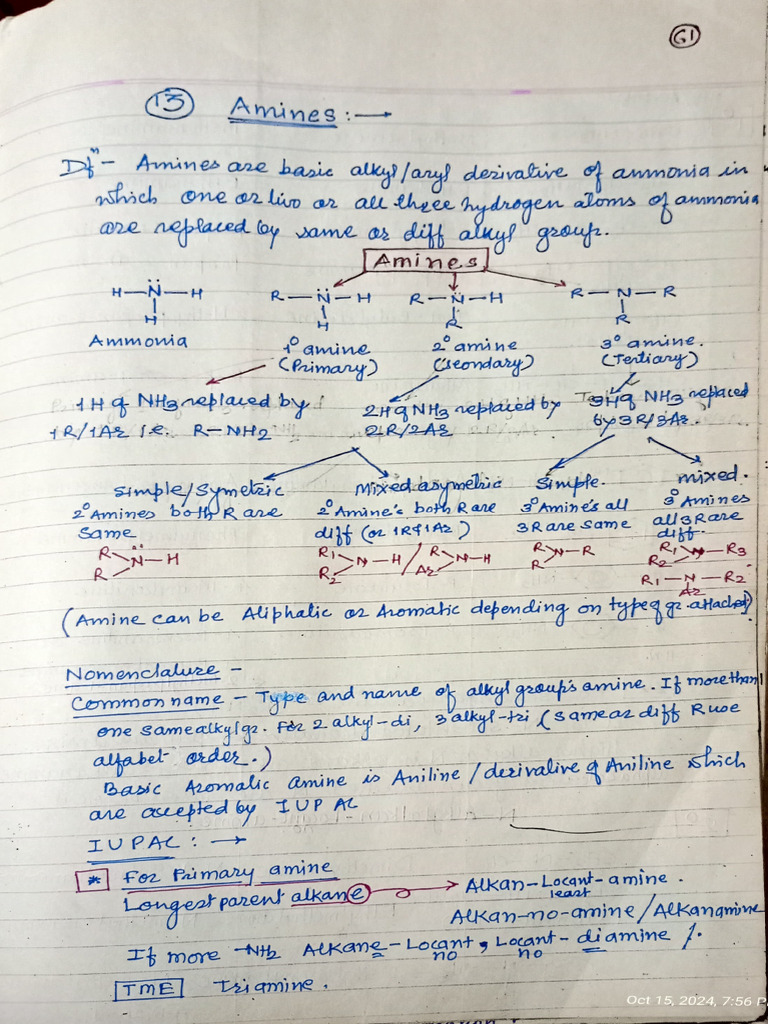 61
13 Amines :→
Dfⁿ - Amines are basic alkyl/aryl derivative of ammonia in
which one or two or all three hydrogen atoms of ammonia
are replaced by same or diff alkyl group.
Amines
H—N̈—H R—N̈—H R—N̈—H R—N—R
H H R R
Ammonia 1° amine 2° amine 3° amine.
(Primary) (Seondary) (Tertiary)
1H of NH3 replaced by 2H of NH3 replaced by 3H of NH3 replaced
1R/1Ar i.e. R—NH2 2R/2Ar by 3R/3Ar.
Simple/Symetric Mixed asymetric Simple. mixed.
2° Amines both R are 2° Amine's both R are 3° Amine's all 3° Amines
Same diff (or 1R & 1Ar) 3R are same all 3R are
diff
R R N̈—H R1 R2 N—H / R Ar N—H R R N—R R1 R2 N—R3
R1—N—R2
Ar
(Amine can be Aliphatic or Aromatic depending on type of gr. attached)
Nomenclature -
Common name - Type and name of alkyl group's amine. If more than 1
one same alkyl gr. for 2 alkyl-di, 3 alkyl-tri (Same as diff R use
alfabet order.)
Basic Aromatic amine is Aniline / derivative of Aniline which
are accepted by IUPAC
IUPAC : →
* For Primary amine
Longest parent alkane → Alkan-Locant-amine.
least
Alkan-no-amine/Alkanamine
If more -NH2 Alkane-Locant, Locant-diamine
no no
TME Triamine.
Oct 15, 2024, 7:56 P